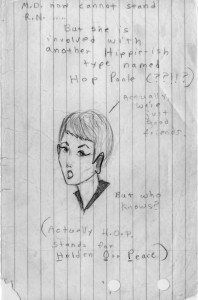 M.D. now cannot stand
R.N.
But she is
involved with
another Hippirish
type named
Hop Poole (??!?)
actually
we're
just
good
friends
But who
knows?
(Actually H.O.P.
stands for
Holden Our Peace)